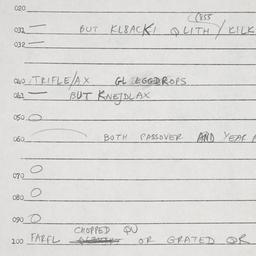 020
CRSS
031 — BUT KLBACKI QLITH / KILK
032 —
040 TRIFLE/AX GL EGGDROPS
041 — BUT KNEJDLAX
050
060 BOTH PASSOVER AND YEAR
070
080
090
100 FARFL CHOPPED QU OR GRATED QR